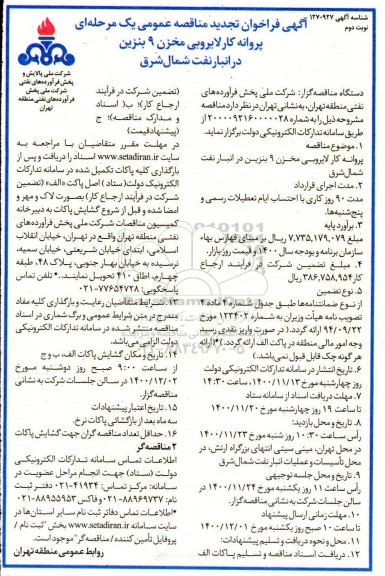 شناسه آگهی ۱۲۷۰۹۲۷
نوبت دوم
آگهی فراخوان تجدید مناقصه عمومی یک مرحله‌ای
پروانه کار لایروبی مخزن ۹ بنزین
در انبار نفت شمال‌شرق
شرکت ملی پالایش و
پخش فرآورده‌های نفتی
شرکت ملی پخش
فرآورده‌های نفتی منطقه
تهران
دستگاه مناقصه‌گزار: شرکت ملی پخش فرآورده‌های
نفتی منطقه تهران، به نشانی تهران در نظر دارد مناقصه
مشروحه ذیل را به شماره ۲۰۰۰۰۹۲۱۶۰۰۰۰۲۸ از
طریق سامانه تدارکات الکترونیکی دولت برگزار نماید.
۱. موضوع مناقصه
پروانه کار لایروبی مخزن ۹ بنزین در انبار نفت
شمال‌شرق
۲. مدت اجرای قرارداد
مدت ۹۰ روز کاری با احتساب ایام تعطیلات رسمی و
پنج‌شنبه‌ها.
۳. برآورد پایه
مبلغ ۷,۷۳۵,۱۷۹,۰۷۹ ریال بر مبنای فهارس بهاء
سازمان برنامه و بودجه سال ۱۴۰۰ و قیمت روز بازار.
۴. مبلغ تضمین شرکت در فرآیند ارجاع
کار ۳۸۶,۷۵۸,۹۵۴ ریال
۵. نوع تضمین
از نوع ضمانتنامه‌ها طبق جدول شماره ۴ ماده ۴
تصویب نامه هیأت وزیران به شماره ۱۲۳۴۰۲ مورخ
۹۴/۰۹/۲۲ ارائه گردد. (در صورت واریز نقدی رسید
وجه امور مالی منطقه در پاکت الف ارائه گردد.) *(ارائه
هر گونه چک قابل قبول نمی‌باشد.)
۶. تاریخ انتشار در سامانه تدارکات الکترونیکی دولت
روز چهارشنبه مورخ ۱۴۰۰/۱۱/۱۳، ساعت ۱۴:۳۰
۷. مهلت دریافت اسناد از سامانه ستاد
تا ساعت ۱۹ روز چهارشنبه مورخ ۱۴۰۰/۱۱/۲۰
۸. تاریخ و محل بازدید:
رأس ساعت ۱۰:۳۰ روز شنبه مورخ ۱۴۰۰/۱۱/۲۳
در محل تهران، مینی سیتی انتهای بزرگراه ارتش، در
محل تأسیسات و عملیات انبار نفت شمال‌شرق
۹. تاریخ و محل جلسه توجیهی
رأس ساعت ۱۱ روز یکشنبه مورخ ۱۴۰۰/۱۱/۲۴ در
سالن جلسات شرکت به نشانی مناقصه‌گزار.
۱۰. مهلت زمانی ارسال پیشنهاد
تا ساعت ۱۰ صبح روز یکشنبه مورخ ۱۴۰۰/۱۲/۰۱
۱۱. محل و نحوه دریافت و تسلیم پیشنهادات:
۱۲. دریافت اسناد مناقصه و تسلیم پاکات الف
(تضمین شرکت در فرآیند
ارجاع کار)؛ ب( اسناد
و مدارک مناقصه)؛ ج
(پیشنهاد قیمت)
در مهلت مقرر متقاضیان با مراجعه به
سایت www.setadiran.ir اسناد را دریافت و پس از
بارگذاری کلیه پاکات تکمیل شده در سامانه تدارکات
الکترونیک دولت( ستاد) اصل پاکت «الف» (تضمین
شرکت در فرآیند ارجاع کار) بصورت لاک و مهر و
امضا شده و قبل از شروع گشایش پاکات به دبیرخانه
کمیسیون مناقصات شرکت ملی پخش فرآورده‌های
نفتی منطقه تهران واقع در تهران، خیابان انقلاب
اسلامی، ابتدای خیابان شریعتی، خیابان سمیه،
نرسیده به خیابان بهار جنوبی، پلاک ۴۸، طبقه
چهارم، اطاق ۴۱۰ تحویل نمایند. * تلفن تماس
پاسخگویی: ۷۷۶۵۴۷۲۸-۰۲۱
۱۳. شرایط متقاضیان رعایت و بارگذاری کلیه مفاد
مندرج در متن شرایط عمومی و برگ شماری در اسناد
مناقصه منتشر شده در سامانه تدارکات الکترونیکی
دولت الزامی می‌باشد.
۱۴. تاریخ و مکان گشایش پاکات الف، ب و ج
از ساعت ۹:۰۰ صبح روز دوشنبه مورخ
۱۴۰۰/۱۲/۰۲ در سالن جلسات شرکت به نشانی
مناقصه‌گزار.
۱۵. تاریخ اعتبار پیشنهادات
سه ماه بعد از بازگشائی پاکات نرخ.
۱۶. حداقل تعداد مناقصه گران جهت گشایش پاکات
۲ مناقصه‌گر
اطلاعات تماس سامانه تدارکات الکترونیکی
دولت (ستاد) جهت انجام مراحل عضویت در
سامانه: مرکز تماس: ۴۱۹۳۴-۰۲۱ دفتر ثبت
نام: ۸۸۹۶۹۷۳۷-۰۲۱ و فاکس ۸۸۹۵۵۹۵۳-۰۲۱
*اطلاعات تماس دفاتر ثبت نام سایر استان‌ها در
سایت سامانه www.setadiran.ir بخش "ثبت نام /
پروفایل تأمین کننده / مناقصه‌گر" موجود است.
روابط عمومی منطقه تهران